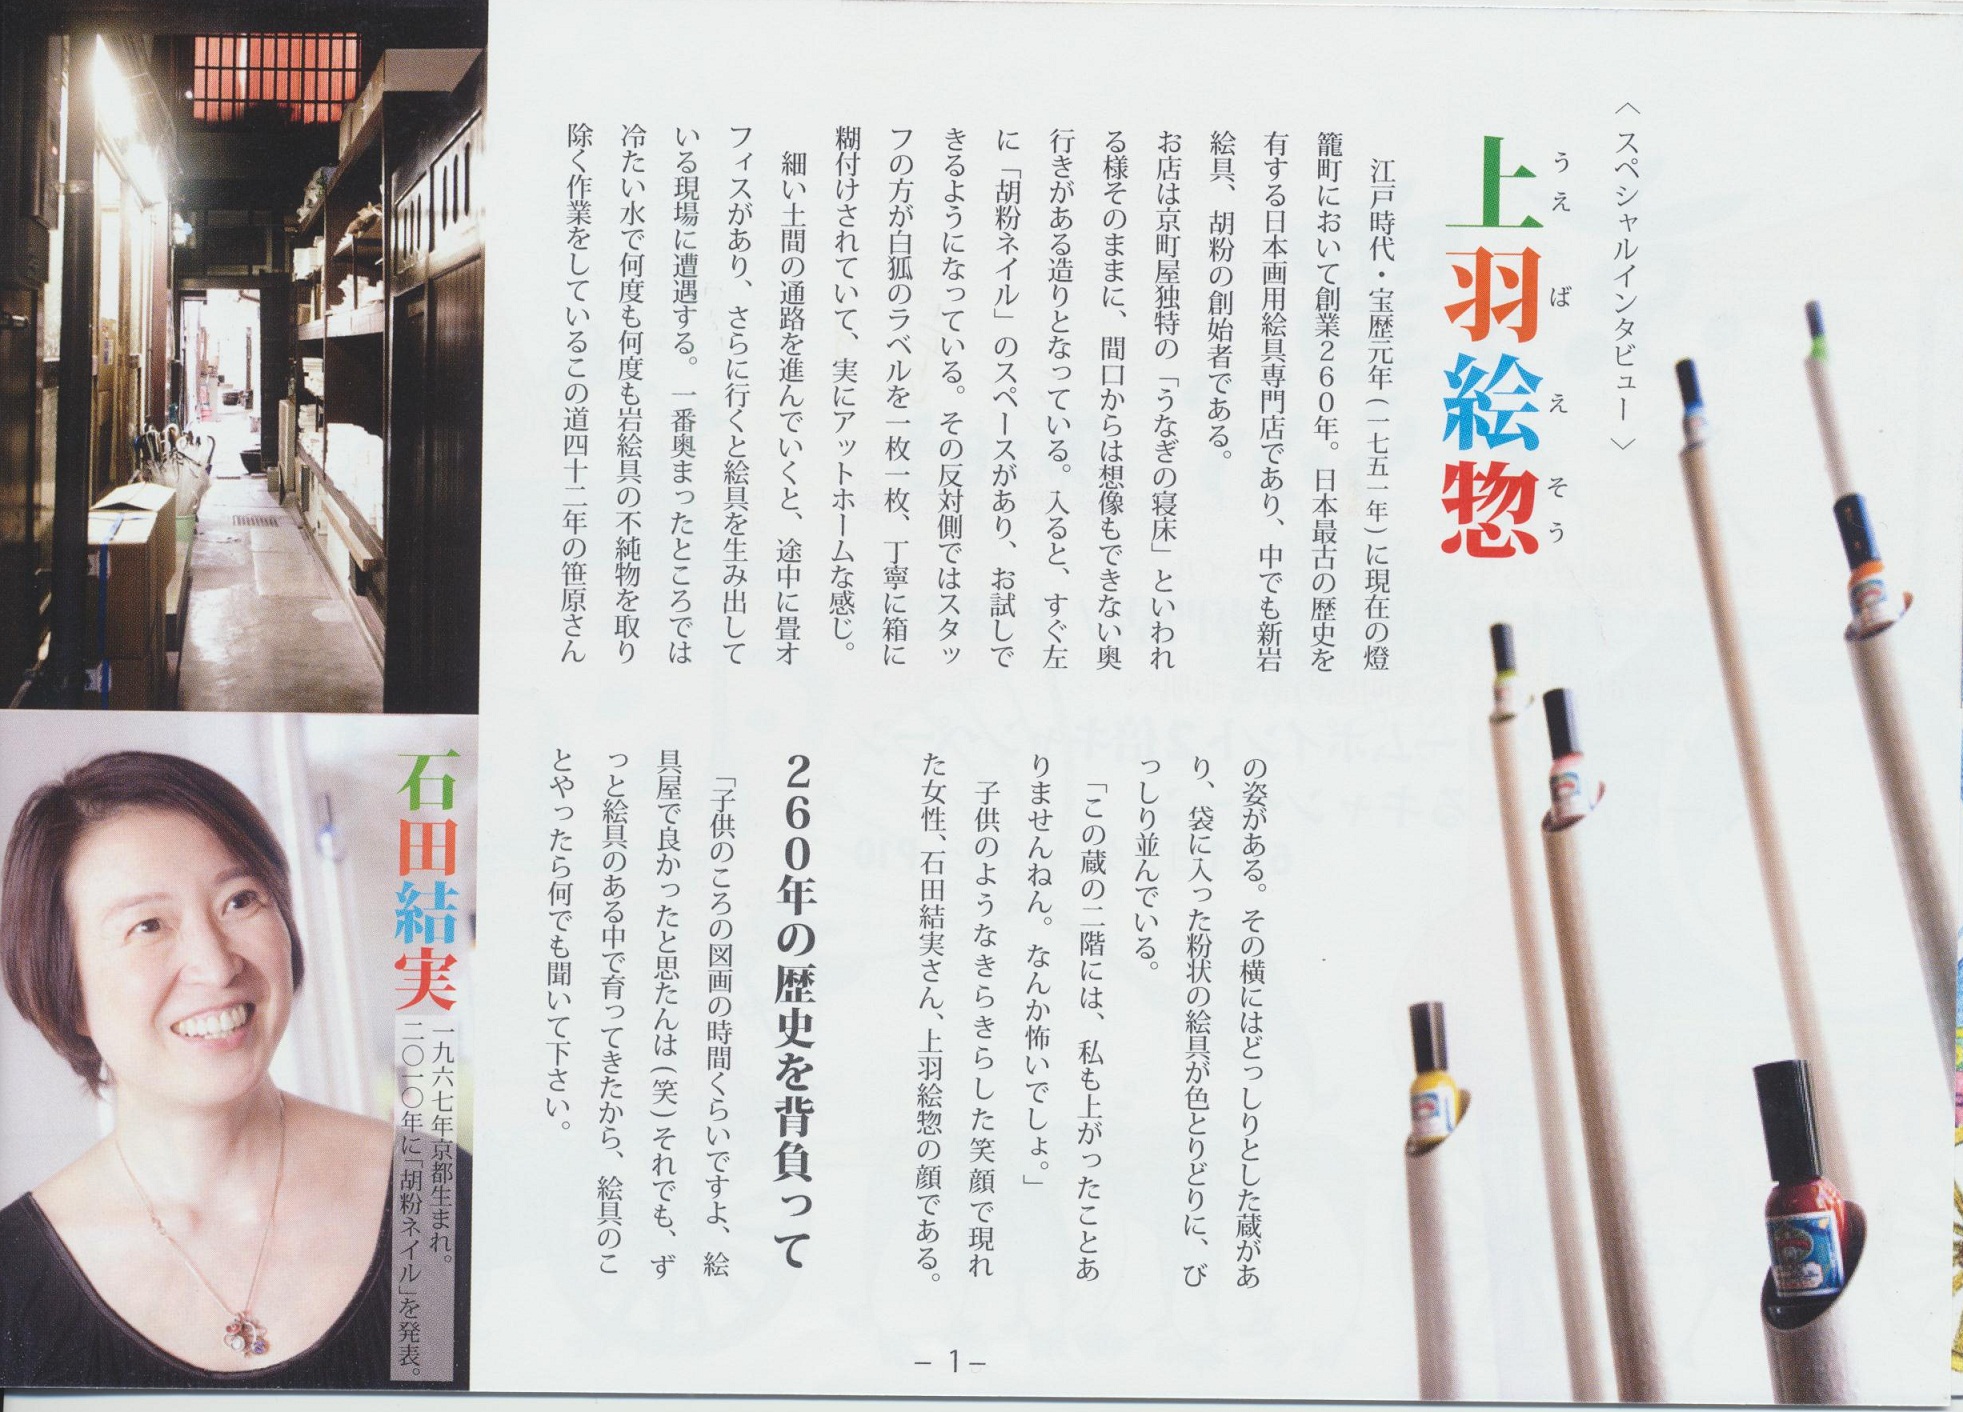 〈スペシャルインタビュー〉
上羽絵惣
うえばえそう
江戸時代・宝歴元年(一七五一年)に現在の燈
籠町において創業260年。日本最古の歴史を
有する日本画用絵具専門店であり、中でも新岩
絵具、胡粉の創始者である。
お店は京町屋独特の「うなぎの寝床」といわれ
る様そのままに、間口からは想像もできない奥
行きがある造りとなっている。入ると、すぐ左
に「胡粉ネイル」のスペースがあり、お試しで
きるようになっている。その反対側ではスタッ
フの方が白狐のラベルを一枚一枚、丁寧に箱に
糊付けされていて、実にアットホームな感じ。
細い土間の通路を進んでいくと、途中に畳オ
フィスがあり、さらに行くと絵具を生み出して
いる現場に遭遇する。一番奥まったところでは
冷たい水で何度も何度も岩絵具の不純物を取り
除く作業をしているこの道四十二年の笹原さん
の姿がある。その横にはどっしりとした蔵があ
り、袋に入った粉状の絵具が色とりどりに、び
っしり並んでいる。
「この蔵の二階には、私も上がったことあ
りませんねん。なんか怖いでしょ。」
子供のようなきらきらした笑顔で現れ
た女性、石田結実さん、上羽絵惣の顔である。
260年の歴史を背負って
「子供のころの図画の時間くらいですよ、絵
具屋で良かったと思たんは(笑)それでも、ず
っと絵具のある中で育ってきたから、絵具のこ
とやったら何でも聞いて下さい。
石田結実
一九六七年京都生まれ。
二〇一〇年に「胡粉ネイル」を発表。
– 1 –